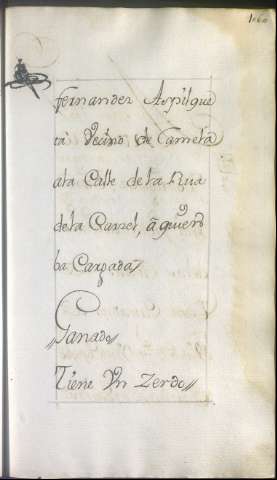 Fernandez Aspilque
ta Vecino de Camesa
ala Calle de la Rua
dela Carzel, â quien
ba Cargada
Ganado
Tiene Un Zerdo